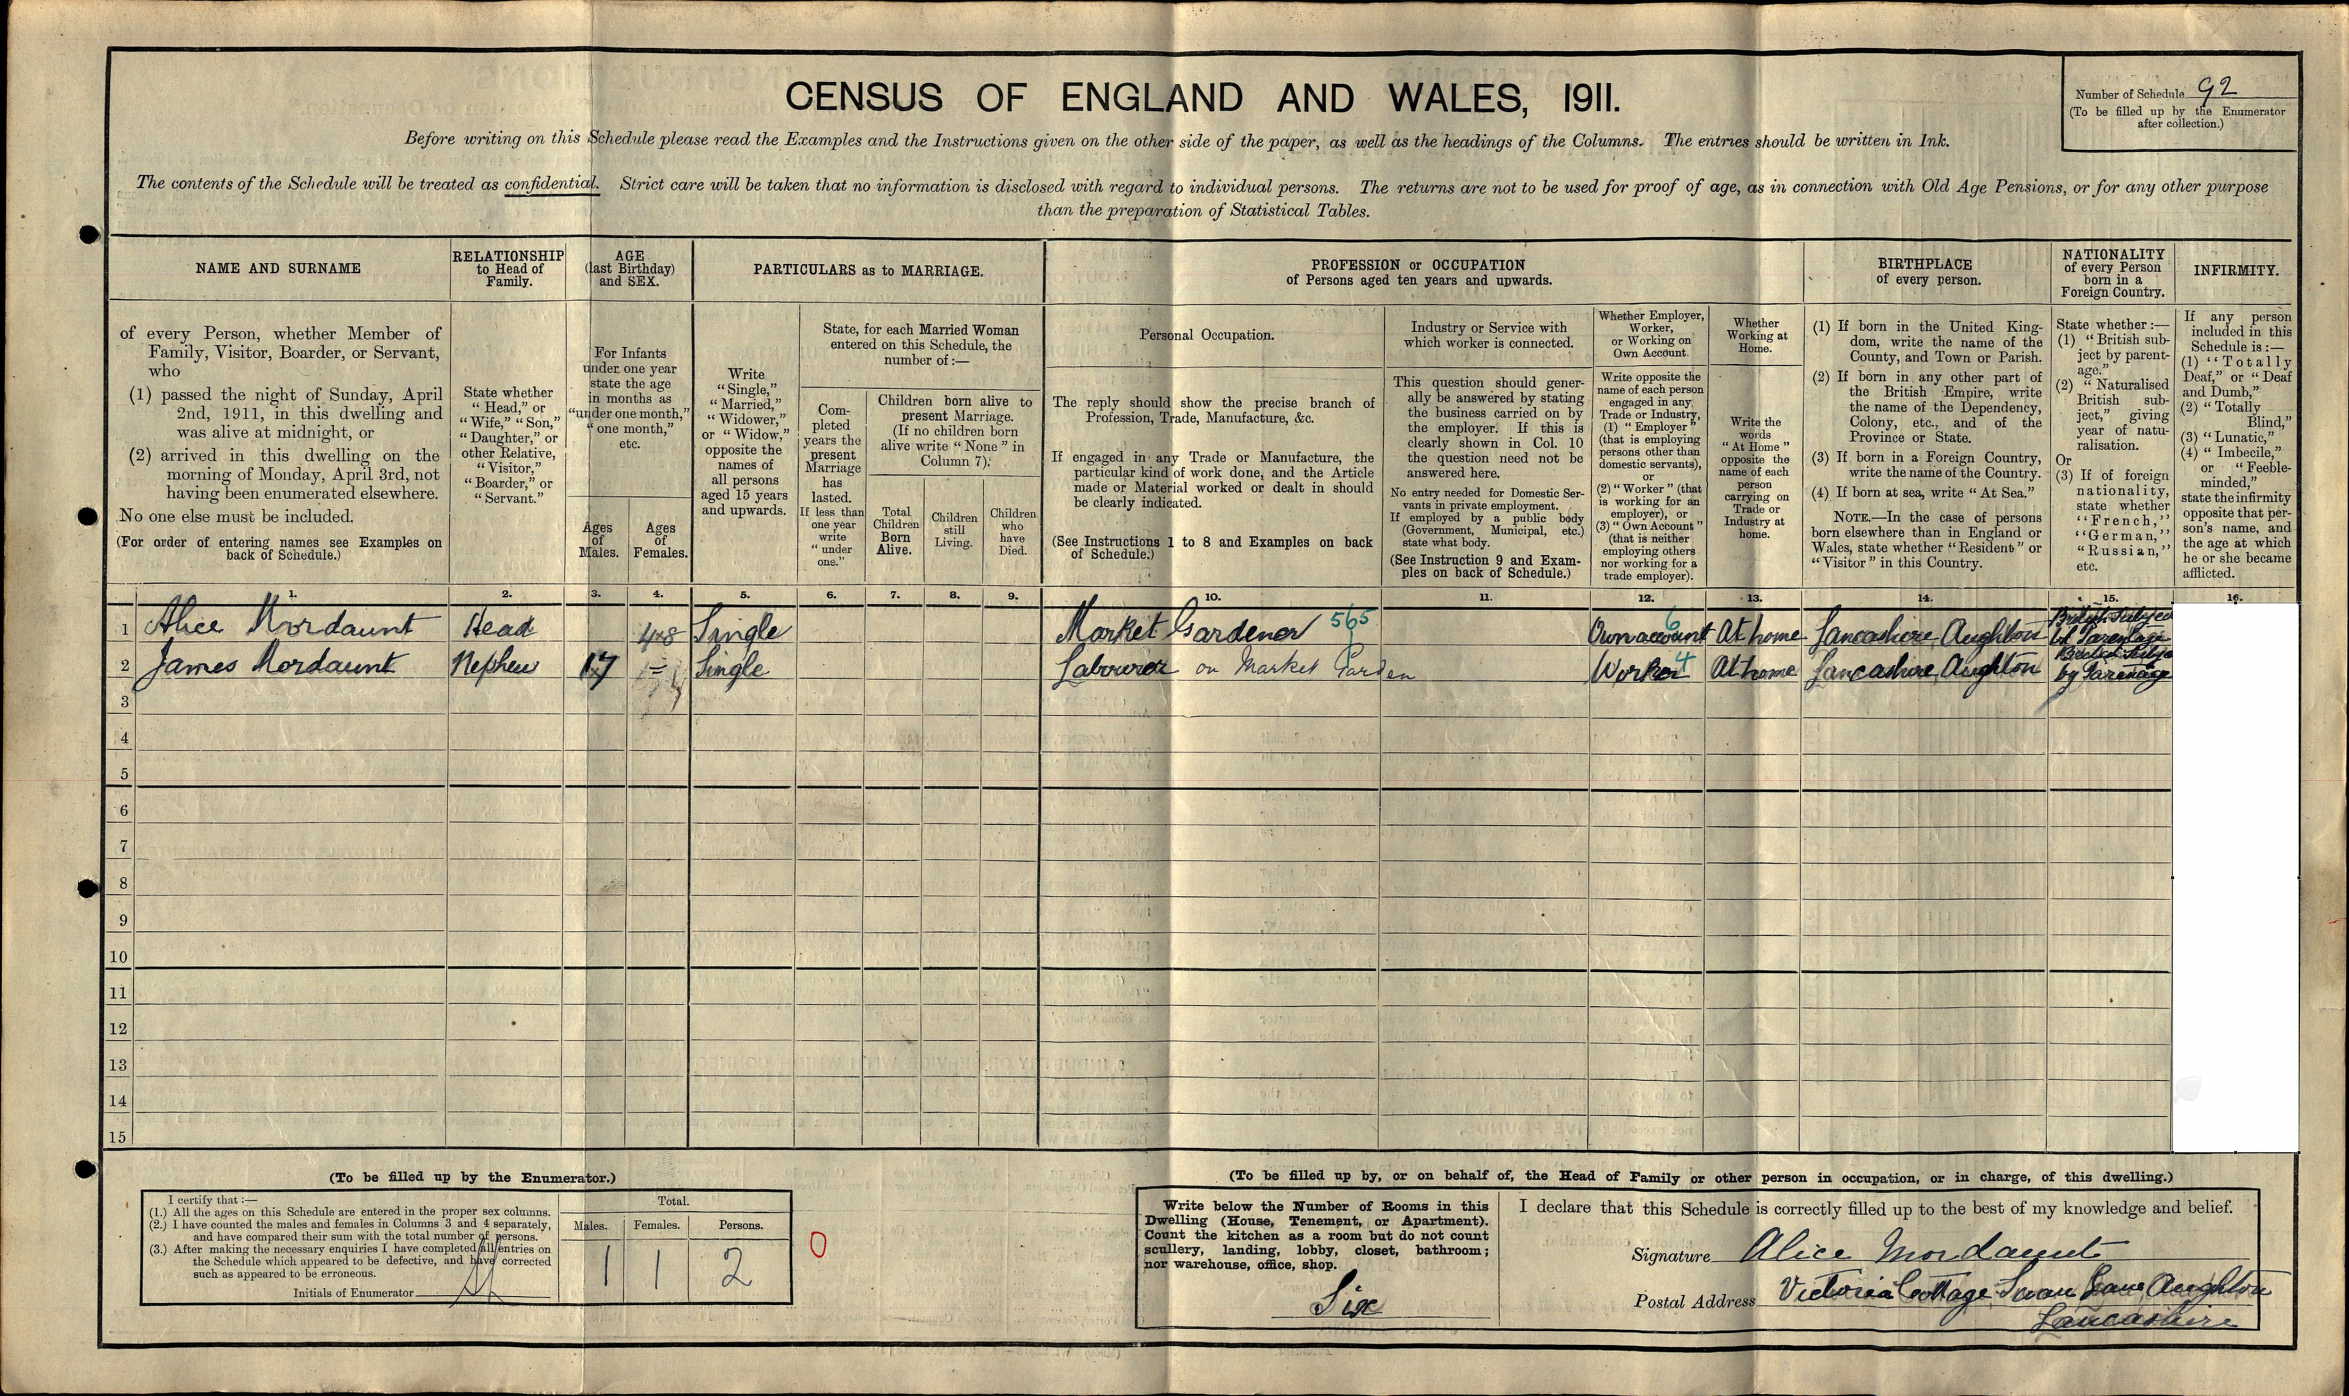 CENSUS OF ENGLAND AND WALES, 1911.
Number of Schedule 92
(To be filled up by the Enumerator
after collection.)
Before writing on this Schedule please read the Examples and the Instructions given on the other side of the paper, as well as the headings of the Columns. The entries should be written in Ink.
The contents of the Schedule will be treated as confidential. Strict care will be taken that no information is disclosed with regard to individual persons. The returns are not to be used for proof of age, as in connection with Old Age Pensions, or for any other purpose
than the preparation of Statistical Tables.
NAME AND SURNAME
of every Person, whether Member of
Family, Visitor, Boarder, or Servant,
who
(1) passed the night of Sunday, April
2nd, 1911, in this dwelling and
was alive at midnight, or
(2) arrived in this dwelling on the
morning of Monday, April 3rd, not
having been enumerated elsewhere.
No one else must be included.
(For order of entering names see Examples on
back of Schedule.)
RELATIONSHIP
to Head of
Family.
State whether
"Head," or
"Wife," "Son,"
"Daughter," or
other Relative,
"Visitor,"
"Boarder," or
"Servant."
AGE
(last Birthday)
and SEX.
For Infants
under one year
state the age
in months as
"under one month,"
"one month,"
etc.
Ages
of
Males.
Ages
of
Females.
PARTICULARS as to MARRIAGE.
Write
"Single,"
"Married,"
"Widower,"
or "Widow,"
opposite the
names of
all persons
aged 15 years
and upwards.
State, for each Married Woman
entered on this Schedule, the
number of:—
Com-
pleted
years the
present
Marriage
has
lasted.
If less than
one year
write
"under
one."
Children born alive to
present Marriage.
(If no children born
alive write "None" in
Column 7).
Total
Children
Born
Alive.
Children
still
Living.
Children
who
have
Died.
PROFESSION or OCCUPATION
of Persons aged ten years and upwards.
Personal Occupation.
The reply should show the precise branch of
Profession, Trade, Manufacture, &c.
If engaged in any Trade or Manufacture, the
particular kind of work done, and the Article
made or Material worked or dealt in should
be clearly indicated.
(See Instructions 1 to 8 and Examples on back
of Schedule.)
Industry or Service with
which worker is connected.
This question should gener-
ally be answered by stating
the business carried on by
the employer. If this is
clearly shown in Col. 10
the question need not be
answered here.
No entry needed for Domestic Ser-
vants in private employment.
If employed by a public body
(Government, Municipal, etc.)
state what body.
(See Instruction 9 and Exam-
ples on back of Schedule.)
Whether Employer,
Worker,
or Working on
Own Account.
Write opposite the
name of each person
engaged in any
Trade or Industry,
(1) "Employer"
(that is employing
persons other than
domestic servants),
or
(2) "Worker" (that
is working for an
employer), or
(3) "Own Account"
(that is neither
employing others
nor working for a
trade employer).
Whether
Working at
Home.
Write the
words
"At Home"
opposite the
name of each
person
carrying on
Trade or
Industry at
home.
BIRTHPLACE
of every person.
(1) If born in the United King-
dom, write the name of the
County, and Town or Parish.
(2) If born in any other part of
the British Empire, write
the name of the Dependency,
Colony, etc., and of the
Province or State.
(3) If born in a Foreign Country,
write the name of the Country.
(4) If born at sea, write "At Sea."
NOTE.—In the case of persons
born elsewhere than in England or
Wales, state whether "Resident" or
"Visitor" in this Country.
NATIONALITY
of every Person
born in a
Foreign Country.
State whether:—
(1) "British sub-
ject by parent-
age."
(2) "Naturalised
British sub-
ject," giving
year of natu-
ralisation.
Or
(3) If of foreign
nationality,
state whether
"French,"
"German,"
"Russian,"
etc.
INFIRMITY.
If any person
included in this
Schedule is:—
(1) "Totally
Deaf," or "Deaf
and Dumb,"
(2) "Totally
Blind,"
(3) "Lunatic,"
(4) "Imbecile,"
or "Feeble-
minded,"
state the infirmity
opposite that per-
son's name, and
the age at which
he or she became
afflicted.
1. 2. 3. 4. 5. 6. 7. 8. 9. 10. 11. 12. 13. 14. 15. 16.
1 Alice Mordaunt Head 48 Single Market Gardener 565 Own account 6 At home Lancashire, Aughton British Subject by Parentage
2 James Mordaunt Nephew 17 Single Labourer on Market Garden Worker 4 At home Lancashire, Aughton British Subje by Parentage
3
4
5
6
7
8
9
10
11
12
13
14
15
(To be filled up by the Enumerator.)
I certify that:—
(1.) All the ages on this Schedule are entered in the proper sex columns.
(2.) I have counted the males and females in Columns 3 and 4 separately,
and have compared their sum with the total number of persons.
(3.) After making the necessary enquiries I have completed all entries on
the Schedule which appeared to be defective, and have corrected
such as appeared to be erroneous.
Initials of Enumerator
Total.
Males. Females. Persons.
1 1 2
0
(To be filled up by, or on behalf of, the Head of Family or other person in occupation, or in charge, of this dwelling.)
Write below the Number of Rooms in this
Dwelling (House, Tenement, or Apartment).
Count the kitchen as a room but do not count
scullery, landing, lobby, closet, bathroom;
nor warehouse, office, shop.
Six
I declare that this Schedule is correctly filled up to the best of my knowledge and belief.
Signature Alice Mordaunt
Postal Address Victoria Cottage Swan Lane Aughton
Lancashire